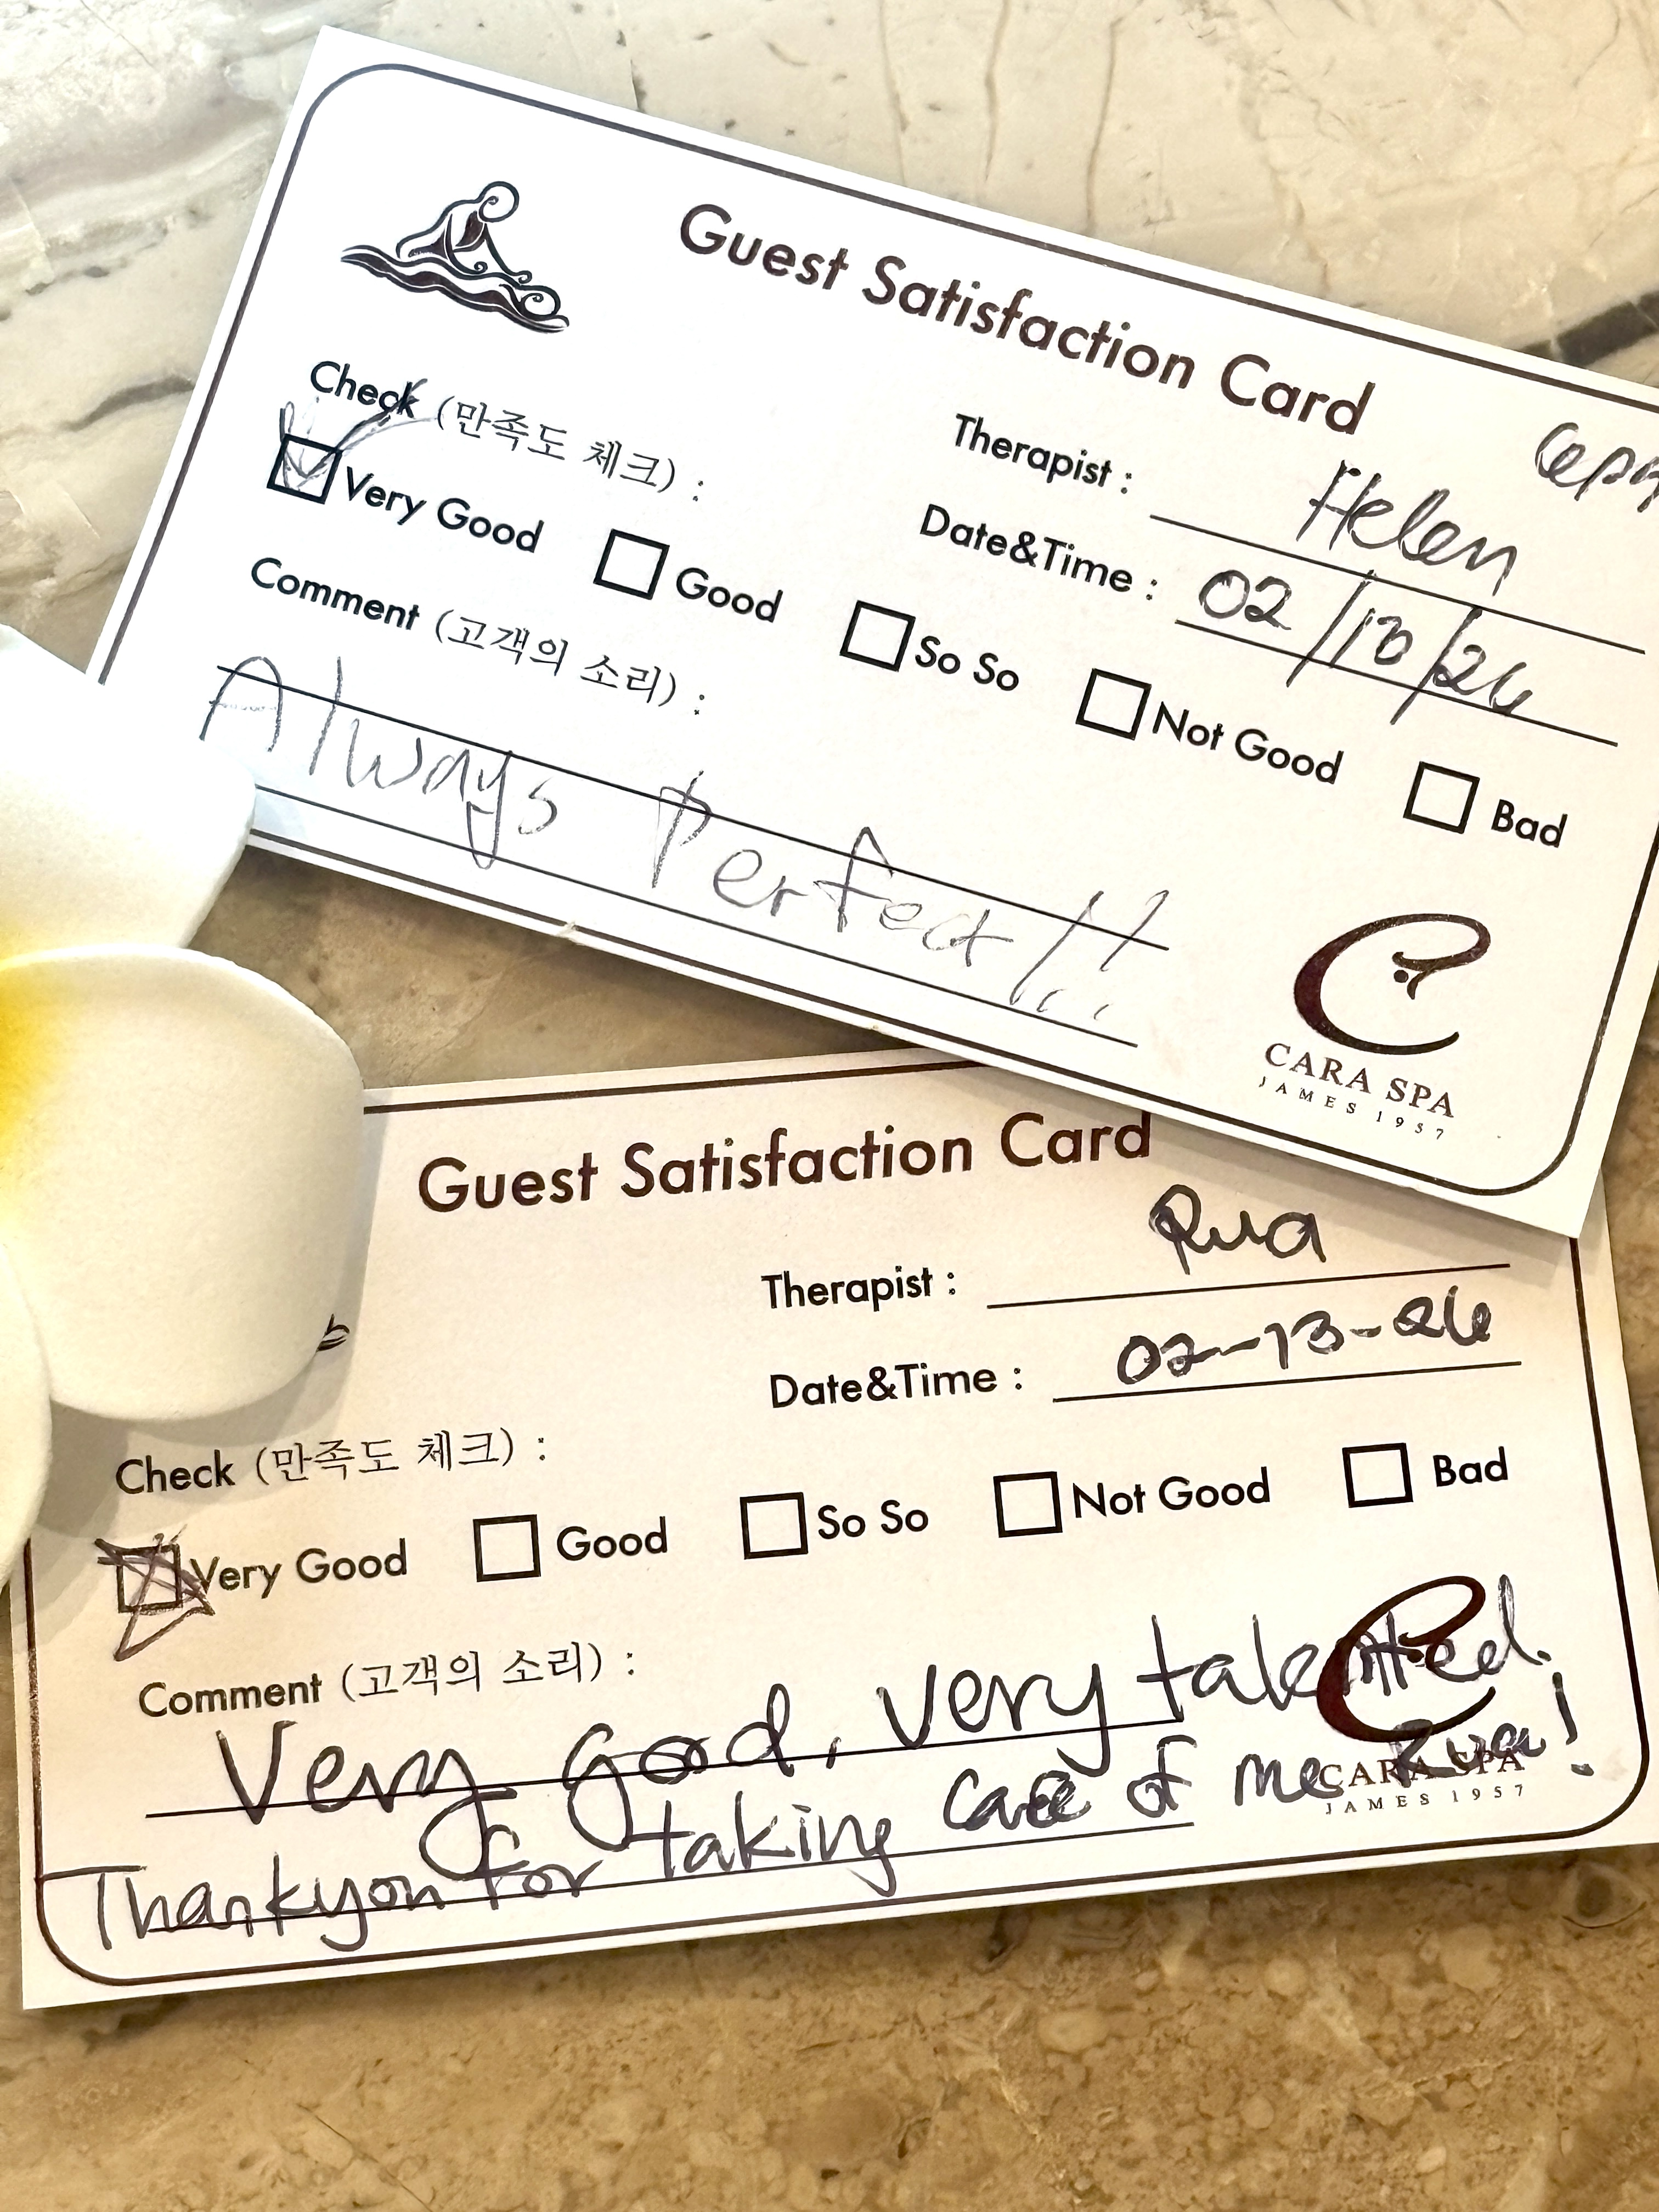 Guest Satisfaction Card
Therapist : Helen
Date&Time : 02/10/26
Check (만족도 체크) :
Very Good Good So So Not Good Bad
Comment (고객의 소리) :
Always Perfect!!
CARA SPA
JAMES 1957
Guest Satisfaction Card
Therapist : Rua
Date&Time : 02-13-26
Check (만족도 체크) :
Very Good Good So So Not Good Bad
Comment (고객의 소리) :
Very good, very talented.
Thankyou for taking care of me Rua!
CARA SPA
JAMES 1957